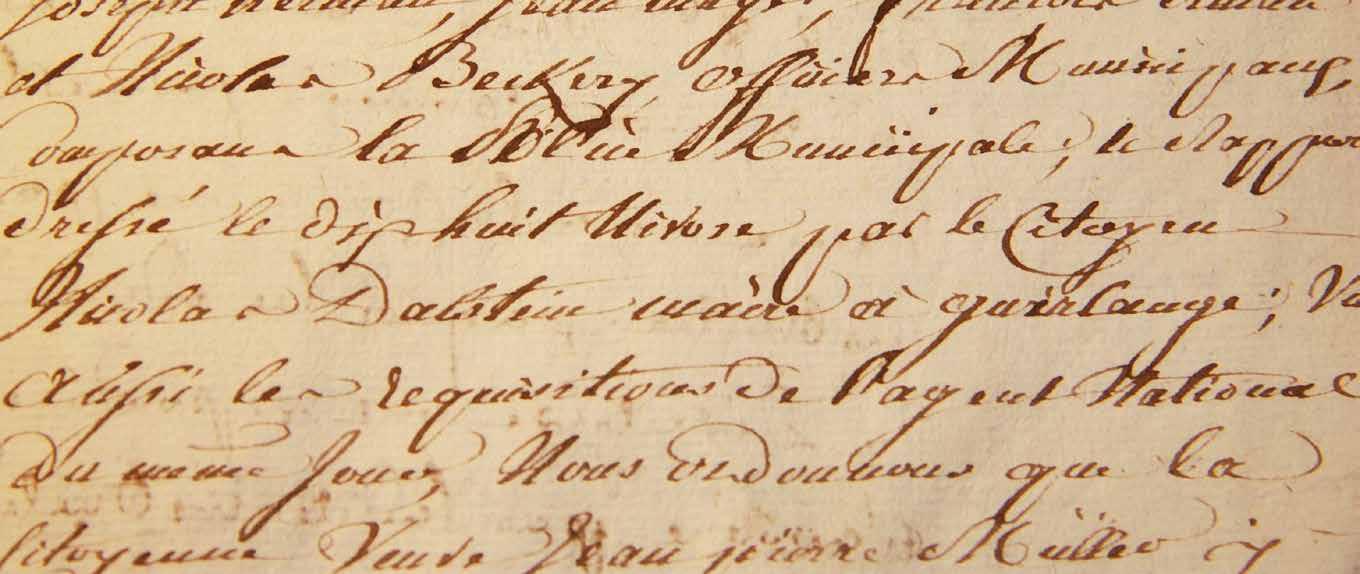 et Nicolas Beckery officiers Municipaux,
Composans la Police Municipale; le
dressé le dix huit Nivose par le Citoyen
Nicolas Dalstein maire à guirlange; Vu
Aussi les requisitions de l'agent National
du meme Jour, Nous ordonnons que la
Citoyenne Veuve Jean pierre Müller